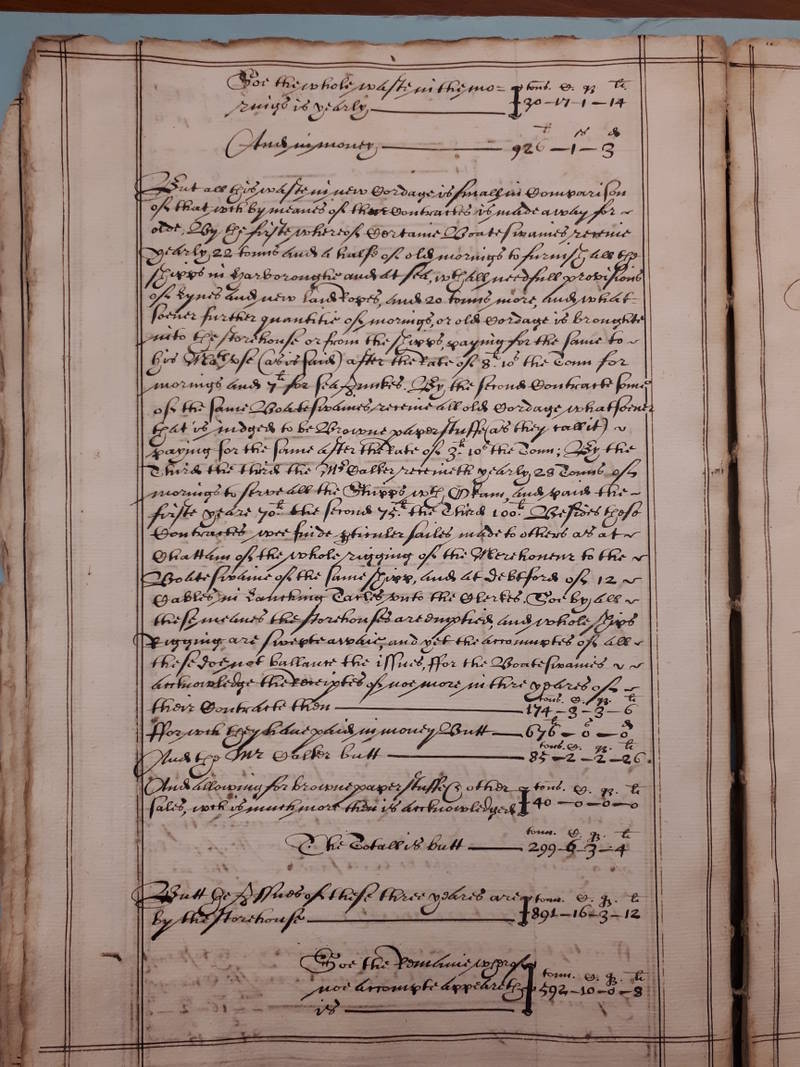 Soe the whole waste in the mo= tons. C. qr. li
rings is yearly 30-17-1-14
li s d
And in money 926-1-3
But all this waste in new Cordage is small in Comparison
of that wch by meanes of three Contractes is made away for
olde, By the firste whereof Certaine Boateswaines receive
yearly 22 tonns and a halfe of old moorings to furnish all the
shipps in harboroughe and at sea, wth all needfull provisions
of lynes and new land ropes, and 20 tonns more, and what-
soever further quantitie of moorings, or old Cordage is broughte
into the storehouse or from the shipps, paying for the same to
his Matys use (as is said) after the Rate of 8li 10s the Tonn for
moorings and 7li for sea Junkes. By the second Contracte some
of the same Boateswaines receive all old Cordage whatsoever
that is iudged to be Browne paper stuffe (as they call it)
paying for the same after the Rate of 3li 10s the Tonn; By the
Third the third the Mr Calker receiveth yearly 28 Tonns of
moorings to serve all the Shipps wth Okam, and paid the
firste yeare 70li the second 75li the Third 100li. Besides these
Contractes wee finde pticuler sailes made to others as at
Chattam of the whole rigging of the Merehonour to the
Boateswaine of the same shipp, and at Debtford of 12
Cables in Lanching Tacles unto the Clerkes. Soe by all
these meanes the storehouses are emptied, and whole ships
Rigging are swepte awaie, and yet the accomptes of all
these doe not ballance the issues, ffor the Boateswaines
acknowledge the Receiptes of noe more in thre yeares of
tons. C. qr. li
their Contracte then 174-3-3-6
li s d
ffor wch they have paid in money Butt 676-0-0
tons. C. qr. li
And the Mr Calker butt 85-2-2-26.
And allowing for browne paper stuffe & other tons. C. qr. li
sales, wch is much more then is acknowledged 40-0-0-0
tonn. C. qr. li
The Totall is butt 299-6-3-4
Butt the Issues of these three yeares are tonn. C. qr. li
by the storehouse 891-16-3-12
Soe the Remaine whereof
tonn. C. qr. li
noe accompte appeareth 592-10-0-8
is